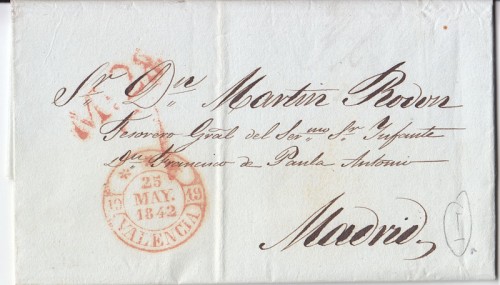 Sr. Dn. Martin Rodon
Tesorero Gral del Sermo Sr. Infante
Dn Francisco de Paula Antonio
Madrid
25
MAY.
1842
19 19
VALENCIA